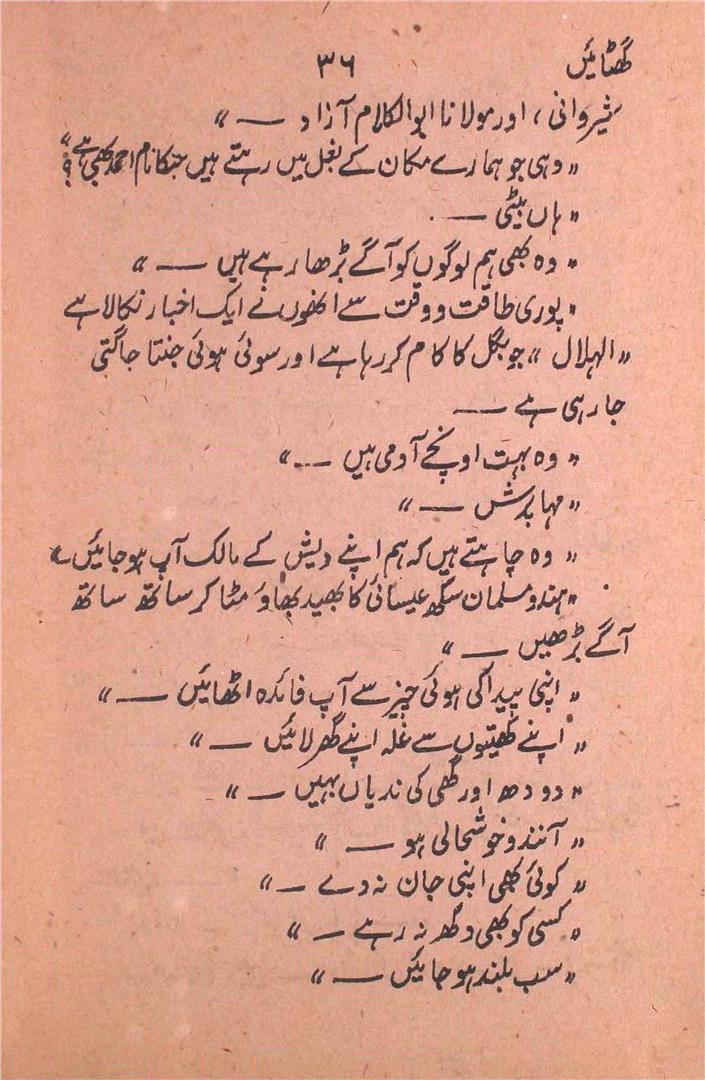 گھٹائیں ۳۶
شیروانی، اور مولانا ابوالکلام آزاد — "
" وہی جو ہمارے مکان کے بغل میں رہتے ہیں جنکا نام احمد بھی ہے ؟ "
" ہاں بیٹی —
" وہ بھی ہم لوگوں کو آگے بڑھا رہے ہیں — "
" پوری طاقت و وقت سے انھوں نے ایک اخبار نکالا ہے
" الہلال " جو بگل کا کام کر رہا ہے اور سوئی ہوئی جنتا جاگتی
جا رہی ہے —
" وہ بہت اونچے آدمی ہیں — "
" مہا پرش — "
" وہ چاہتے ہیں کہ ہم اپنے دیش کے مالک آپ ہو جائیں — "
" ہندو مسلمان سکھ عیسائی کا بھید بھاؤ مٹا کر ساتھ ساتھ
آگے بڑھیں — "
" اپنی پیدا کی ہوئی چیز سے آپ فائدہ اٹھائیں — "
" اپنے کھیتوں سے غلہ اپنے گھر لائیں — "
" دودھ اور گھی کی ندیاں بہیں — "
" آنند و خوشحالی ہو — "
" کوئی بھی اپنی جان نہ دے — "
" کسی کو بھی دکھ نہ رہے — "
" سب بلند ہو جائیں — "